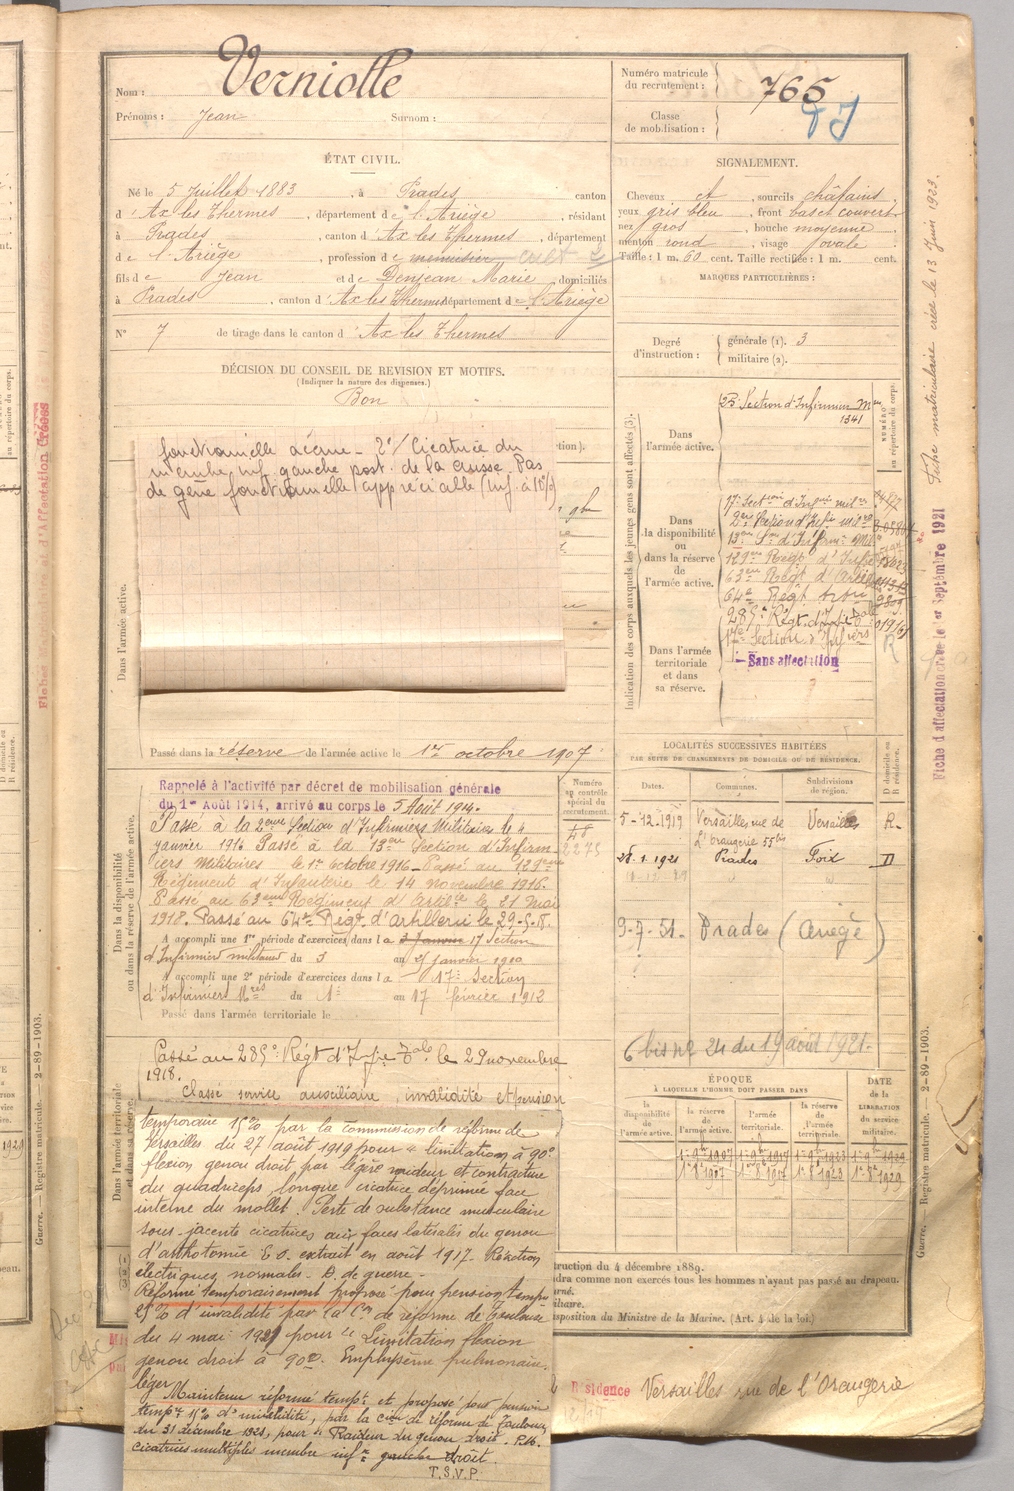 Nom : Verniolle
Prénoms : Jean Surnom :
Numéro matricule du recrutement : 765
Classe de mobilisation :
ÉTAT CIVIL.
Né le 5 Juillet 1883, à Prades canton
d'Ax les Thermes, département de l'Ariège, résidant
à Prades, canton d'Ax les Thermes, département
de l'Ariège, profession de menuisier
fils de Jean et de Denjean Marie domiciliés
à Prades, canton d'Ax les Thermes département de l'Ariège
N° 7 de tirage dans le canton d'Ax les Thermes
SIGNALEMENT.
Cheveux et, sourcils châtains
yeux gris bleu, front bas et couvert
nez gros, bouche moyenne
menton rond, visage ovale
Taille : 1 m. 60 cent. Taille rectifiée : 1 m. cent.
MARQUES PARTICULIÈRES :
Degré d'instruction : générale (1). 3
militaire (2).
DÉCISION DU CONSEIL DE REVISION ET MOTIFS.
(Indiquer la nature des dispenses.)
Bon
fonctionnelle accrue - 2°/ Cicatrice du
membre inf. gauche post. de la cuisse. Pas
de gêne fonctionnelle appréciable (inf. à 10%)
Dans l'armée active.
Passé dans la réserve de l'armée active le 1er octobre 1907
Indication des corps auxquels les jeunes gens sont affectés (3).
NUMÉRO au répertoire du corps.
Dans l'armée active.
Section d'Infirmiers
1341
Dans la disponibilité ou dans la réserve de l'armée active.
17e Section d'Infirs milres
2e Section d'Infi milres
13me Son d'Infirm. Mil
129me Régt d'Infie
63me Régt d'Artie
64e Régt
285e Régt d'Infie
Section d'Infiers
Dans l'armée territoriale et dans sa réserve.
Sans affectation
R
Dans la disponibilité ou dans la réserve de l'armée active.
Rappelé à l'activité par décret de mobilisation générale
du 1er Août 1914, arrivé au corps le 5 Août 1914.
Passé à la 2eme Section d'Infirmiers Militaires le 4
janvier 1916 Passé à la 13eme Section d'Infirm-
iers Militaires le 1er Octobre 1916 - Passé au 129eme
Régiment d'Infanterie le 14 novembre 1916.
Passé au 63eme Régiment d'Artilie le 21 Mai
1918. Passé au 64e Régt d'artillerie le 29-5-18.
A accompli une 1re période d'exercices dans la 17 Section
d'Infirmiers militaires du 3 au janvier 1910
A accompli une 2e période d'exercices dans la 17e Section
d'Infirmiers Mres du 1er au 17 février 1912
Passé dans l'armée territoriale le
Numéro au contrôle spécial du recrutement.
LOCALITÉS SUCCESSIVES HABITÉES
PAR SUITE DE CHANGEMENTS DE DOMICILE OU DE RÉSIDENCE.
Dates. Communes. Subdivisions de région. D domicile ou R résidence.
5-12-1919 Versailles rue de l'Orangerie 55 bis Versailles R.
28.1.1921 Prades Foix D
9-7-51 - Prades (Ariège)
6 bis n° 24 du 19 août 1921-
Dans l'armée territoriale et dans sa réserve.
Passé au 285e Régt d'Infie Tale le 29 novembre
1918.
Classé service auxiliaire, invalidité et pension
temporaire 15% par la commission de réforme de
Versailles du 27 août 1919 pour « limitation à 90°
flexion genou droit par légère raideur et contracture
du quadriceps, longue cicatrice déprimée face
interne du mollet. Perte de substance musculaire
sous-jacente cicatrices aux faces latérales du genou
d'arthotomie E.O. extrait en août 1917. Réaction
électriques normales - B. de guerre -
Réformé temporairement proposé pour pension temp
25% d'invalidité par la Con de réforme de Toulouse
du 4 mai 1921 pour Limitation flexion
genou droit à 90°. Emphysème pulmonaire
léger
Maintenu réformé tempt et proposé pour pension
tempe 15% d'invalidité, par la Con de réforme de Toulouse
du 31 décembre 1921, pour Raideur du genou droit.
cicatrices multiples membre infr gauche droit.
T.S.V.P.
ÉPOQUE
À LAQUELLE L'HOMME DOIT PASSER DANS
la disponibilité de l'armée active. la réserve de l'armée active. l'armée territoriale. la réserve de l'armée territoriale.
DATE DE LA LIBÉRATION du service militaire.
truction du 4 décembre 1889.
dra comme non exercés tous les hommes n'ayant pas passé au drapeau.
sposition du Ministre de la Marine. (Art. 4 de la loi.)
Résidence Versailles rue de l'Orangerie
Fiche matriculaire créée le 13 Juin 1923.
Fiche d'affectation créée le 1er Septembre 1921
Guerre. — Registre matricule. — 2-89-1903.
Guerre. — Registre matricule. — 2-89-1903.